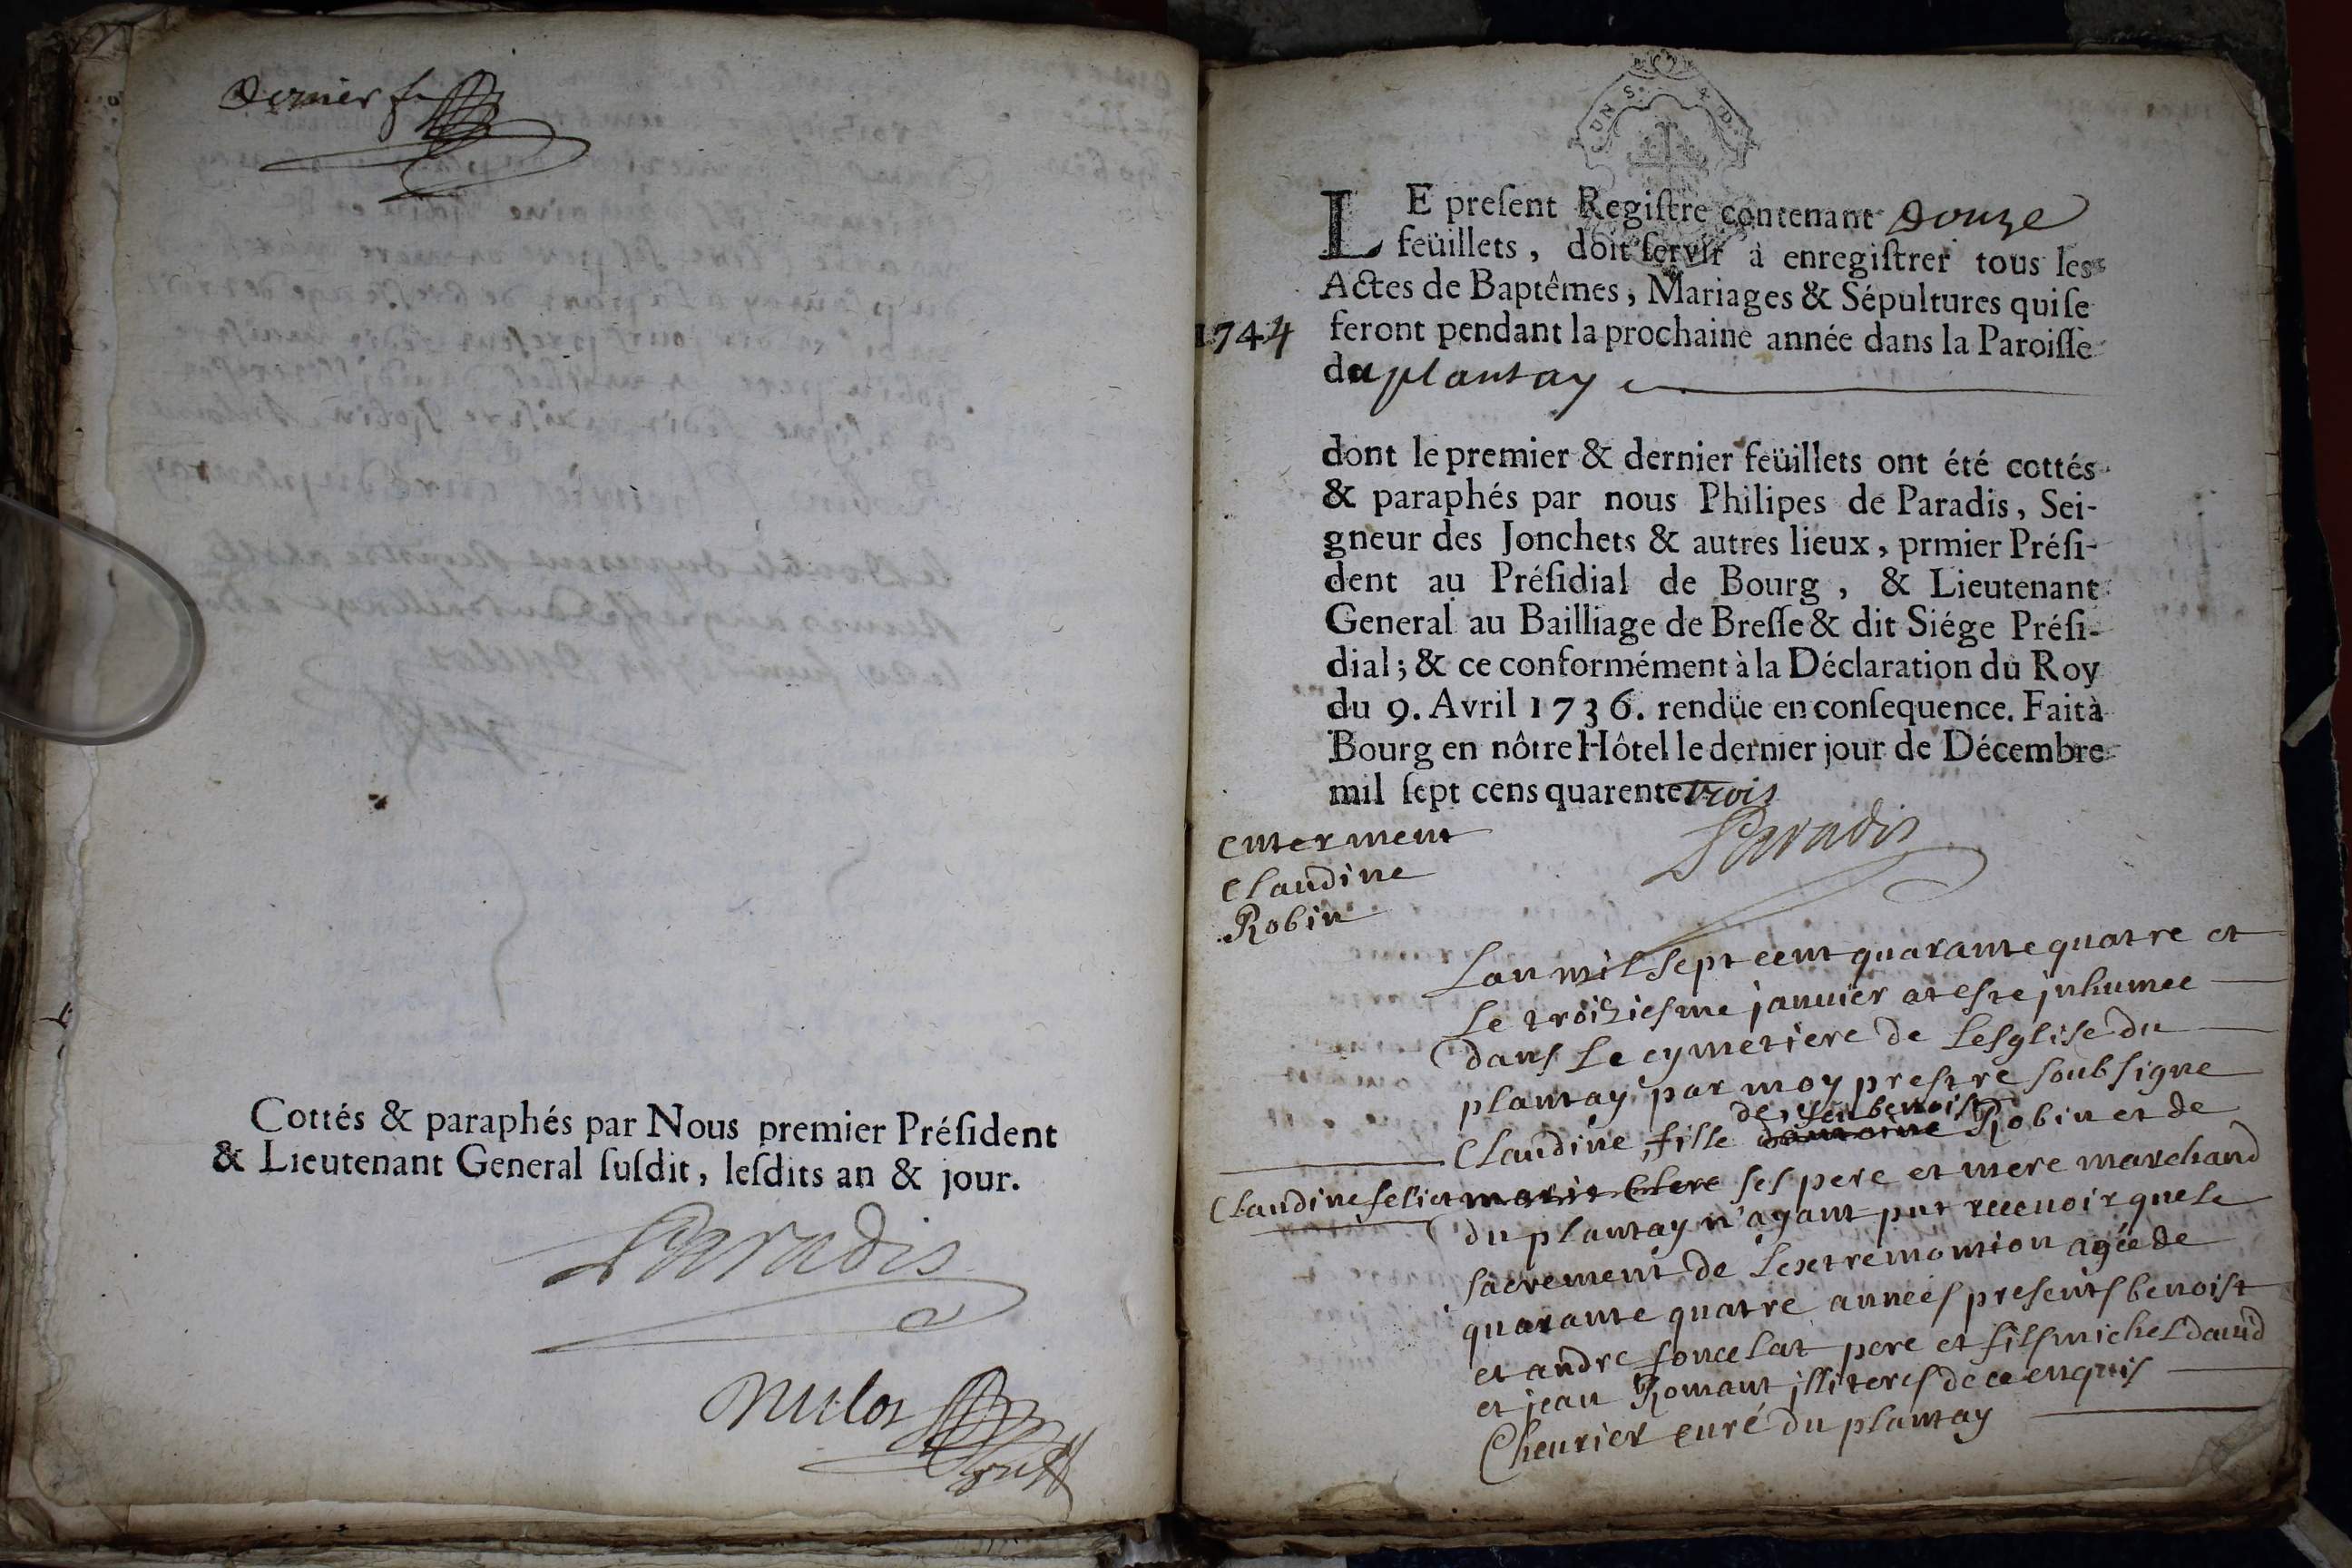 Dernier f
Cottés & paraphés par Nous premier Préſident
& Lieutenant General ſuſdit, leſdits an & jour.
Paradis
UN S. 4 D.
LE preſent Regiſtre contenant Douze
feüillets, doit ſervir à enregiſtrer tous les
Actes de Baptêmes, Mariages & Sépultures qui ſe
1744 feront pendant la prochaine année dans la Paroiſſe
du plantay
dont le premier & dernier feüillets ont été cottés
& paraphés par nous Philipes de Paradis, Sei-
gneur des Jonchets & autres lieux, prmier Préſi-
dent au Préſidial de Bourg, & Lieutenant
General au Bailliage de Breſſe & dit Siége Préſi-
dial; & ce conformément à la Déclaration du Roy
du 9. Avril 1736. rendüe en conſequence. Fait à
Bourg en nôtre Hôtel le dernier jour de Décembre
mil ſept cens quarente trois
Paradis
enterment
Claudine
Robin
Lan mil sept cent quarante quatre et
Le troiziesme januier at este jnhumee
dans Le cymetiere de Lesglise du
plantay par moy prestre soubsigne
de feu benoist
Claudine fille dantoine Robin et de
Claudine feliat marie clere ses pere et mere marchand
du plantay n'ayant put receuoir que le
sacrement de Lextremontion agée de
quarante quatre années presents benoist
et andre foncelat pere et fils michel dauid
et jean Romant jlliteres de ce enquis
Cheurier curé du plantay